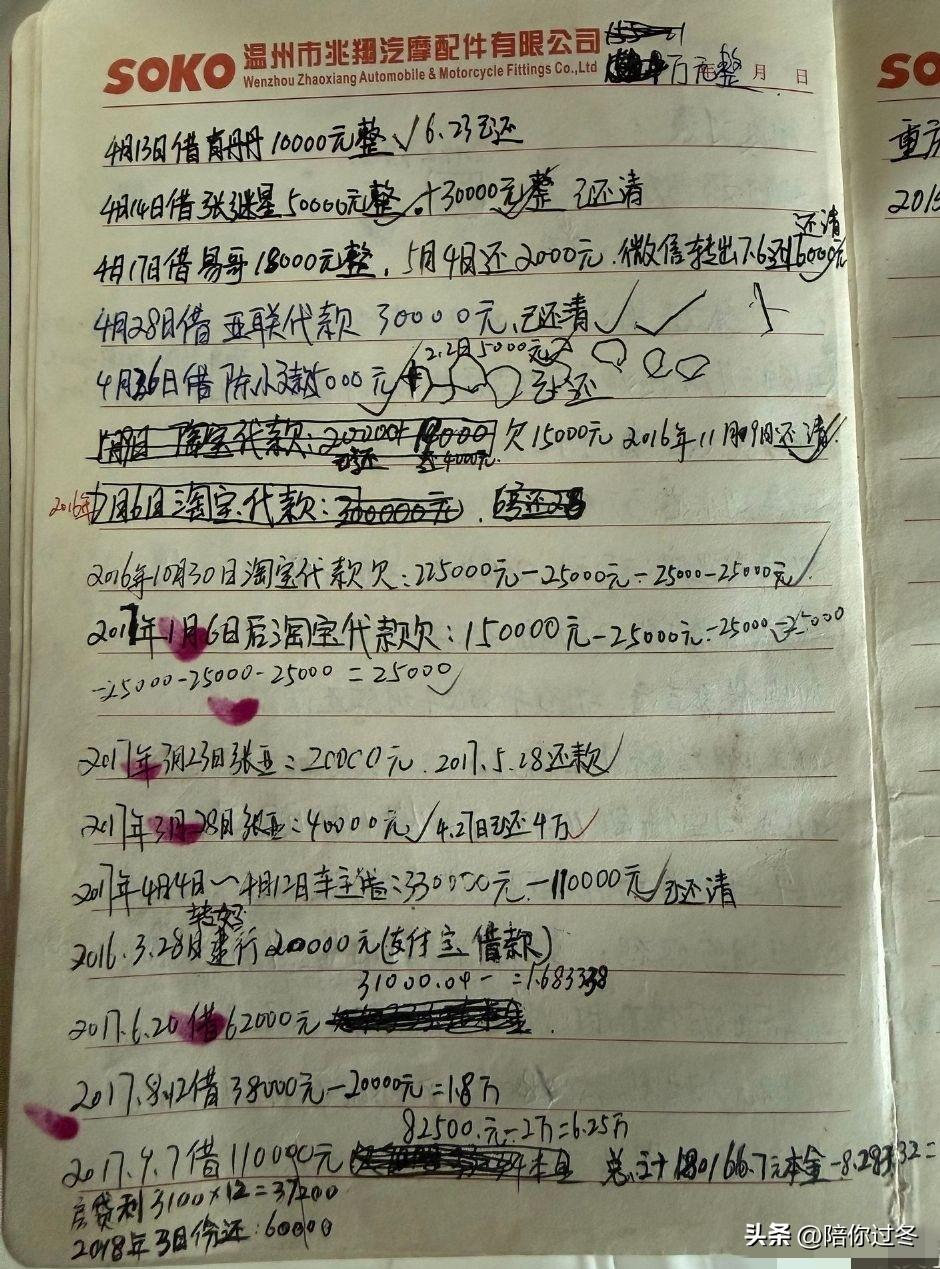 SOKO 温州市兆翔汽摩配件有限公司
Wenzhou Zhaoxiang Automobile & Motorcycle Fittings Co.,Ltd
万元整 月 日
4月13日借 10000元整√6.23已还
4月14日借张继星50000元整√+30000元整 已还清
还清
4月17日借易哥18000元整,5月4日还2000元.微信转出7.6还16000元
4月28日借亚联代款 30000元,已还清√√
2.2日5000元
4月26日借陈小 15000元 已还
淘宝代款:200000+ 欠15000元 2016年11月19日还清√
还4000元
2016年7月6日淘宝代款:300000元.
2016年10月30日淘宝代款欠:225000元-25000元-25000-25000元√
2017年1月6日后淘宝代款欠:150000元-25000元-25000-25000
-25000-25000-25000=25000√
2017年3月23日张亚:20000元.2017.5.28还款√
2017年3月28日张亚:40000元√4.27日已还4万√
2017年4月4日~4月12日车主借:330000元-110000元√已还清
2016.3.28日建行20000元(支付宝借款)
31000.04- =1.683338
2017.6.20借62000元
2017.8.12借38000元-20000元=1.8万
82500.元-2万=6.25万
2017.9.7借110000元 本金 总计180166.7元本金-8.28332=
房贷利3100×12=37200
2018年3月份还:60000
SO
重庆
2015
头条 @陪你过冬